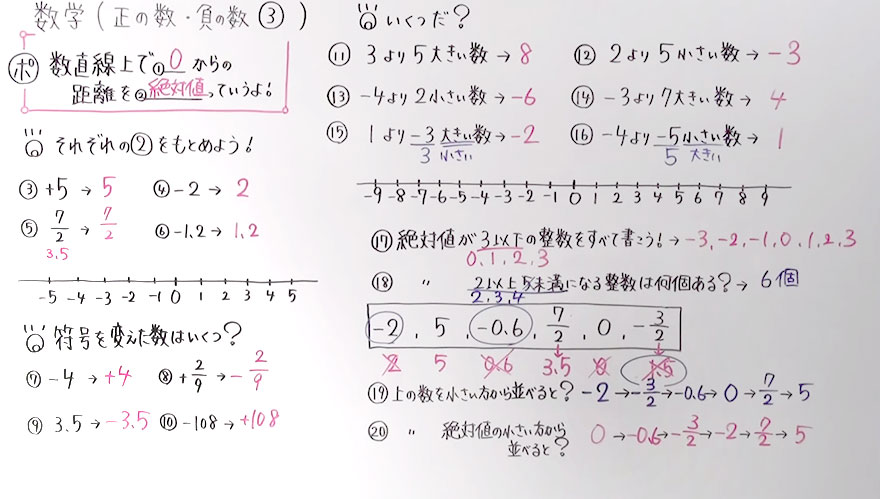 数学(正の数・負の数③)
ポ 数直線上で①0からの
距離を②絶対値っていうよ!
それぞれの②をもとめよう!
③ +5 → 5 ④ -2 → 2
⑤ 7/2 → 7/2 ⑥ -1.2 → 1.2
3.5
-5 -4 -3 -2 -1 0 1 2 3 4 5
符号を変えた数はいくつ?
⑦ -4 → +4 ⑧ +2/9 → -2/9
⑨ 3.5 → -3.5 ⑩ -108 → +108
いくつだ?
⑪ 3より5大きい数 → 8 ⑫ 2より5小さい数 → -3
⑬ -4より2小さい数 → -6 ⑭ -3より7大きい数 → 4
⑮ 1より-3大きい数 → -2 ⑯ -4より-5小さい数 → 1
3 小さい 5 大きい
-9 -8 -7 -6 -5 -4 -3 -2 -1 0 1 2 3 4 5 6 7 8 9
⑰ 絶対値が3以下の整数をすべて書こう! → -3、-2、-1、0、1、2、3
0、1、2、3
⑱ 〃 2以上5未満になる整数は何個ある? → 6個
2、3、4
-2 , 5 , -0.6 , 7/2 , 0 , -3/2
2 5 0.6 3.5 0 1.5
⑲ 上の数を小さい方から並べると? -2 → -3/2 → -0.6 → 0 → 7/2 → 5
⑳ 〃 絶対値の小さい方から
並べると? 0 → -0.6 → -3/2 → -2 → 7/2 → 5